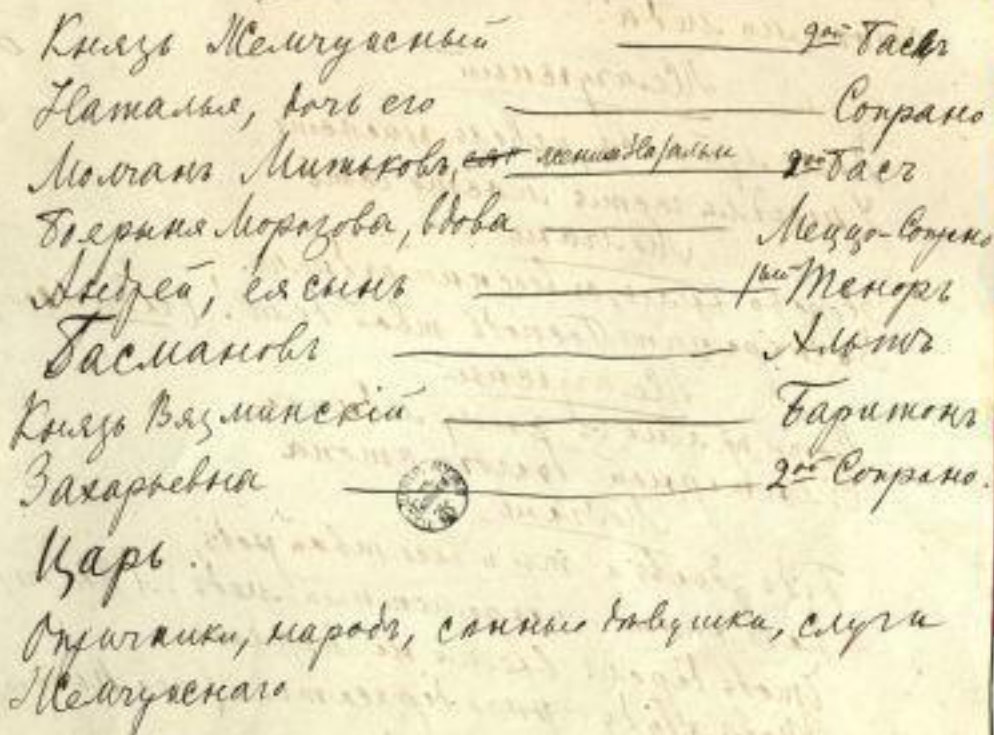 Князь Жемчужный — 2ой Басъ
Наталья, дочь его — Сопрано
Молчанъ Митьковъ, женихъ Натальи — 2ой Басъ
Боярыня Морозова, вдова — Меццо-Сопрано
Андрей, ея сынъ — 1ый Теноръ
Басмановъ — Альтъ
Князь Вязминскій — Баритонъ
Захарьевна — 2ое Сопрано.
Царь.
Опричники, народъ, сѣнные дѣвушки, слуги
Жемчужнаго